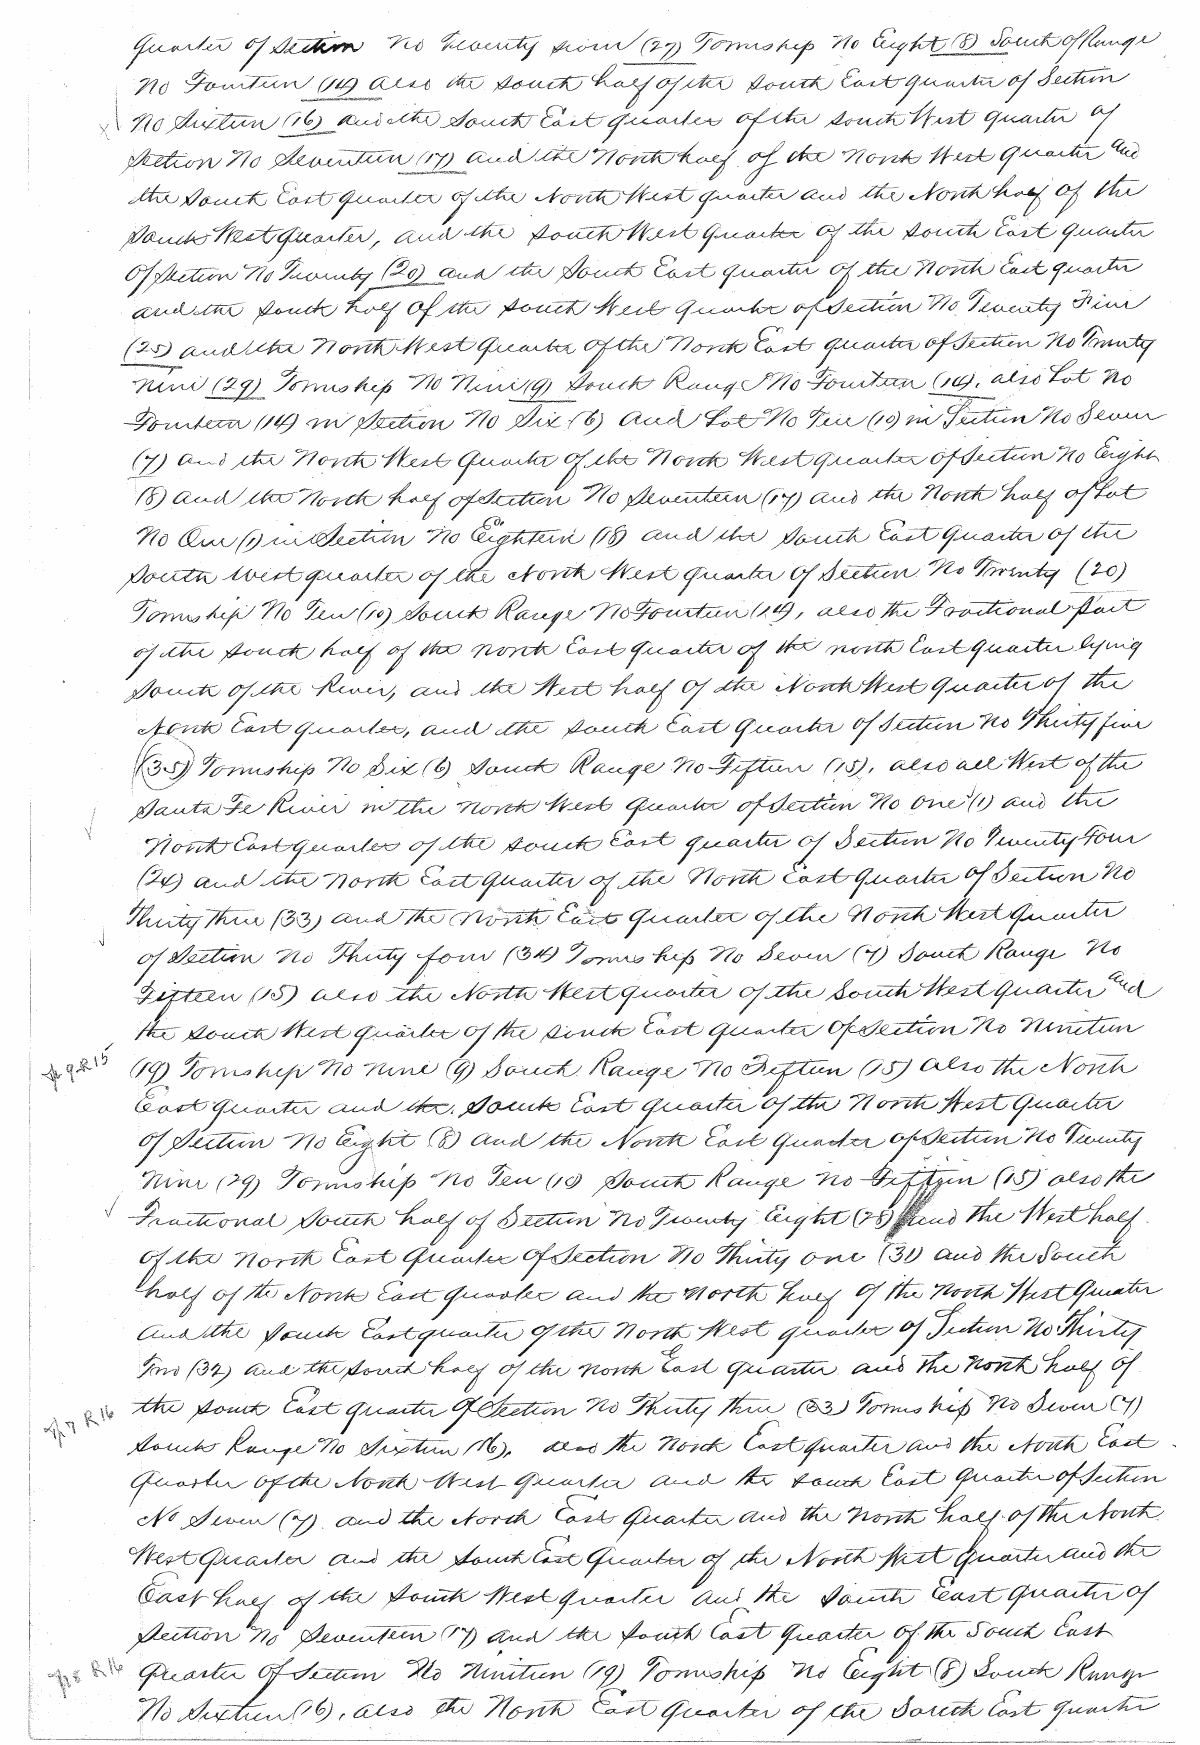 Quarter of Section No Twenty seven (27) Township No Eight (8) South of Range
No Fourteen (14) also the South half of the South East quarter of Section
No Sixteen (16) and the South East Quarter of the South West quarter of
Section No Seventeen (17) and the North half of the North West Quarter and
the South East Quarter of the North West quarter and the North half of the
South West Quarter, and the South West Quarter of the South East quarter
Of Section No Twenty (20) and the South East quarter of the North East quarter
and the South half of the South West Quarter of Section No Twenty Five
(25) and the North West Quarter of the North East quarter of Section No Twenty
nine (29) Township No Nine (9) South Range No Fourteen (14), also Lot No
Fourteen (14) in Section No Six (6) and Lot No Ten (10) in Section No Seven
(7) and the North West Quarter of the North West quarter of Section No Eight
(8) and the North half of Section No Seventeen (17) and the North half of Lot
No One (1) in Section No Eighteen (18) and the South East Quarter of the
South West quarter of the North West quarter of Section No Twenty (20)
Township No Ten (10) South Range No Fourteen (14), also the Fractional part
of the South half of the north East Quarter of the north East Quarter lying
South of the River, and the West half of the North West Quarter of the
North East quarter, and the South East Quarter of Section No Thirty five
(35) Township No Six (6) South Range No Fifteen (15), also all West of the
Santa Fe River in the North West Quarter of Section No One (1) and the
North East quarter of the South East quarter of Section No Twenty Four
(24) and the North East Quarter of the North East Quarter of Section No
Thirty three (33) and the North East Quarter of the North West Quarter
of Section No Thirty four (34) Township No Seven (7) South Range No
Fifteen (15) also the North West quarter of the South West Quarter and
the South West quarter of the South East quarter Of Section No Nineteen
T 9 R 15 (19) Township No nine (9) South Range No Fifteen (15) also the North
East Quarter and the South East Quarter of the North West Quarter
of Section No Eight (8) and the North East Quarter of Section No Twenty
Nine (29) Township No Ten (10) South Range No Fifteen (15) also the
Fractional South half of Section No Twenty Eight (28) and the West half
of the North East Quarter of Section No Thirty one (31) and the South
half of the North East quarter and the North half of the North West Quarter
and the South East quarter of the North West quarter of Section No Thirty
Two (32) and the South half of the north East Quarter and the North half of
T 7 R 16 the South East Quarter of Section No Thirty three (33) Township No Seven (7)
South Range No Sixteen (16), also the North East quarter and the North East
Quarter of the North West Quarter and the South East Quarter of Section
No Seven (7) and the North East Quarter and the North half of the North
West Quarter and the South East Quarter of the North West Quarter and the
East half of the South West quarter and the South East Quarter of
Section No Seventeen (17) and the South East Quarter of the South East
T 8 R 16 Quarter Of Section No Nineteen (19) Township No Eight (8) South Range
No Sixteen (16), also the North East Quarter of the South East quarter